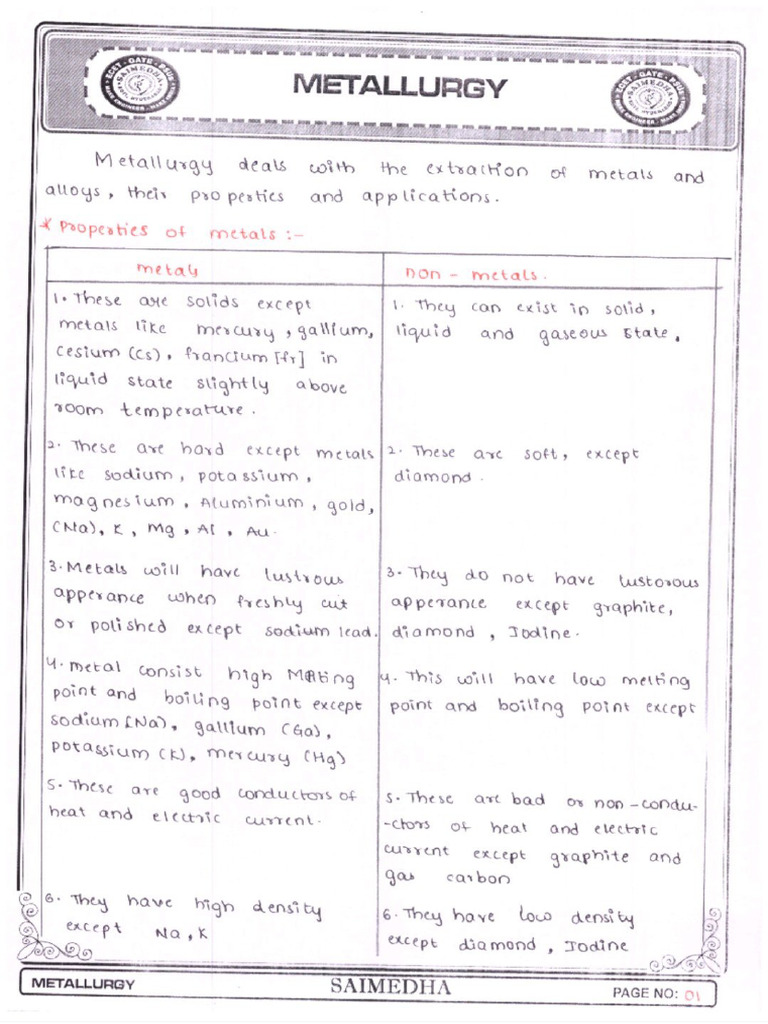 ECET - GATE - PSUs
SAIMEDHA
METALLURGY
ECET - GATE - PSUs
SAIMEDHA
Metallurgy deals with the extraction of metals and
alloys, their properties and applications.
* Properties of metals :-
metals
1. These are solids except
metals like mercury, gallium,
cesium (Cs), francium [fr] in
liquid state slightly above
room temperature.
2. These are hard except metals
like sodium, potassium,
magnesium, Aluminium, gold,
(Na), K, Mg, Al, Au.
3. Metals will have lustrous
apperance when freshly cut
or polished except sodium lead.
4. metal consist high Melting
point and boiling point except
sodium [Na), gallium (Ga),
potassium (K), mercury (Hg)
5. These are good conductors of
heat and electric current.
6. They have high density
except Na, K
non - metals.
1. They can exist in solid,
liquid and gaseous state,
2. These are soft, except
diamond.
3. They do not have lustorous
apperance except graphite,
diamond, Iodine.
4. This will have low melting
point and boiling point except
5. These are bad or non-condu-
-ctors of heat and electric
current except graphite and
gas carbon
6. They have low density
except diamond, Iodine
METALLURGY
SAIMEDHA
PAGE NO: 01